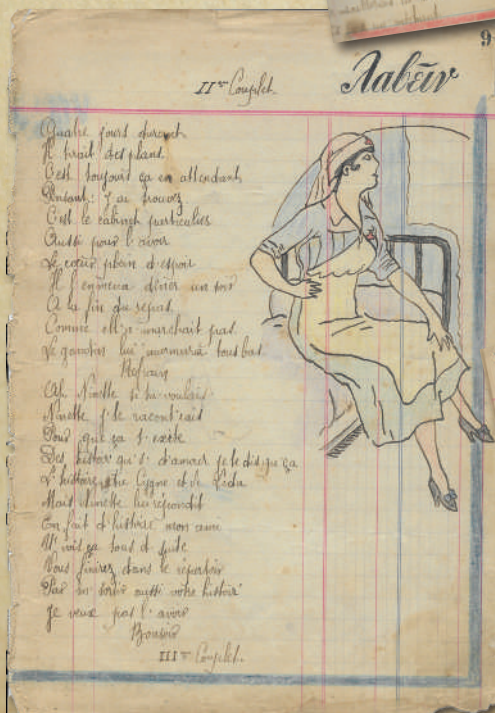 9
Λαβεῖν
IIme Couplet.
Quatre jours durant
Il tirait des plans
C'est toujours ça en attendant
Pensant: J'ai trouvez
C'est le cabinet particulier
Aussi pour l'avoir
Le cœur plein d'espoir
Il l'enmena dîner un soir
A la fin du repas
Comme ell' n'marchait pas
Le gandin lui murmura tous bas
Refrain
Ah Ninette si tu voulais
Ninette j'te racont'rais
Pour que ça t'excite
Des histoir' qu's d'amour je te dis que ça
L'histoire du Cygne et de Léda
Mais Ninette lui répondit
En fait d'histoire mon ami
J'vois ça tous d'suite
Vous finirez dans le répertoir
Par un' aussi votre histoir'
Je veux pas l'avoir
Bonsoir
IIIme Couplet.